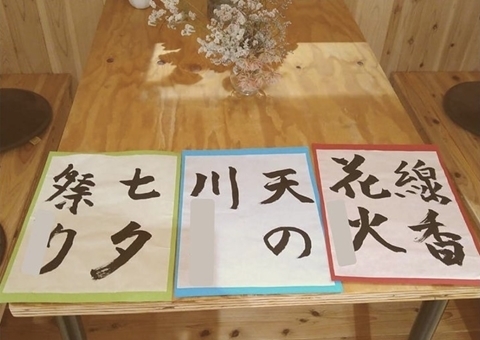 七夕
祭り
天の
川
線香
花火